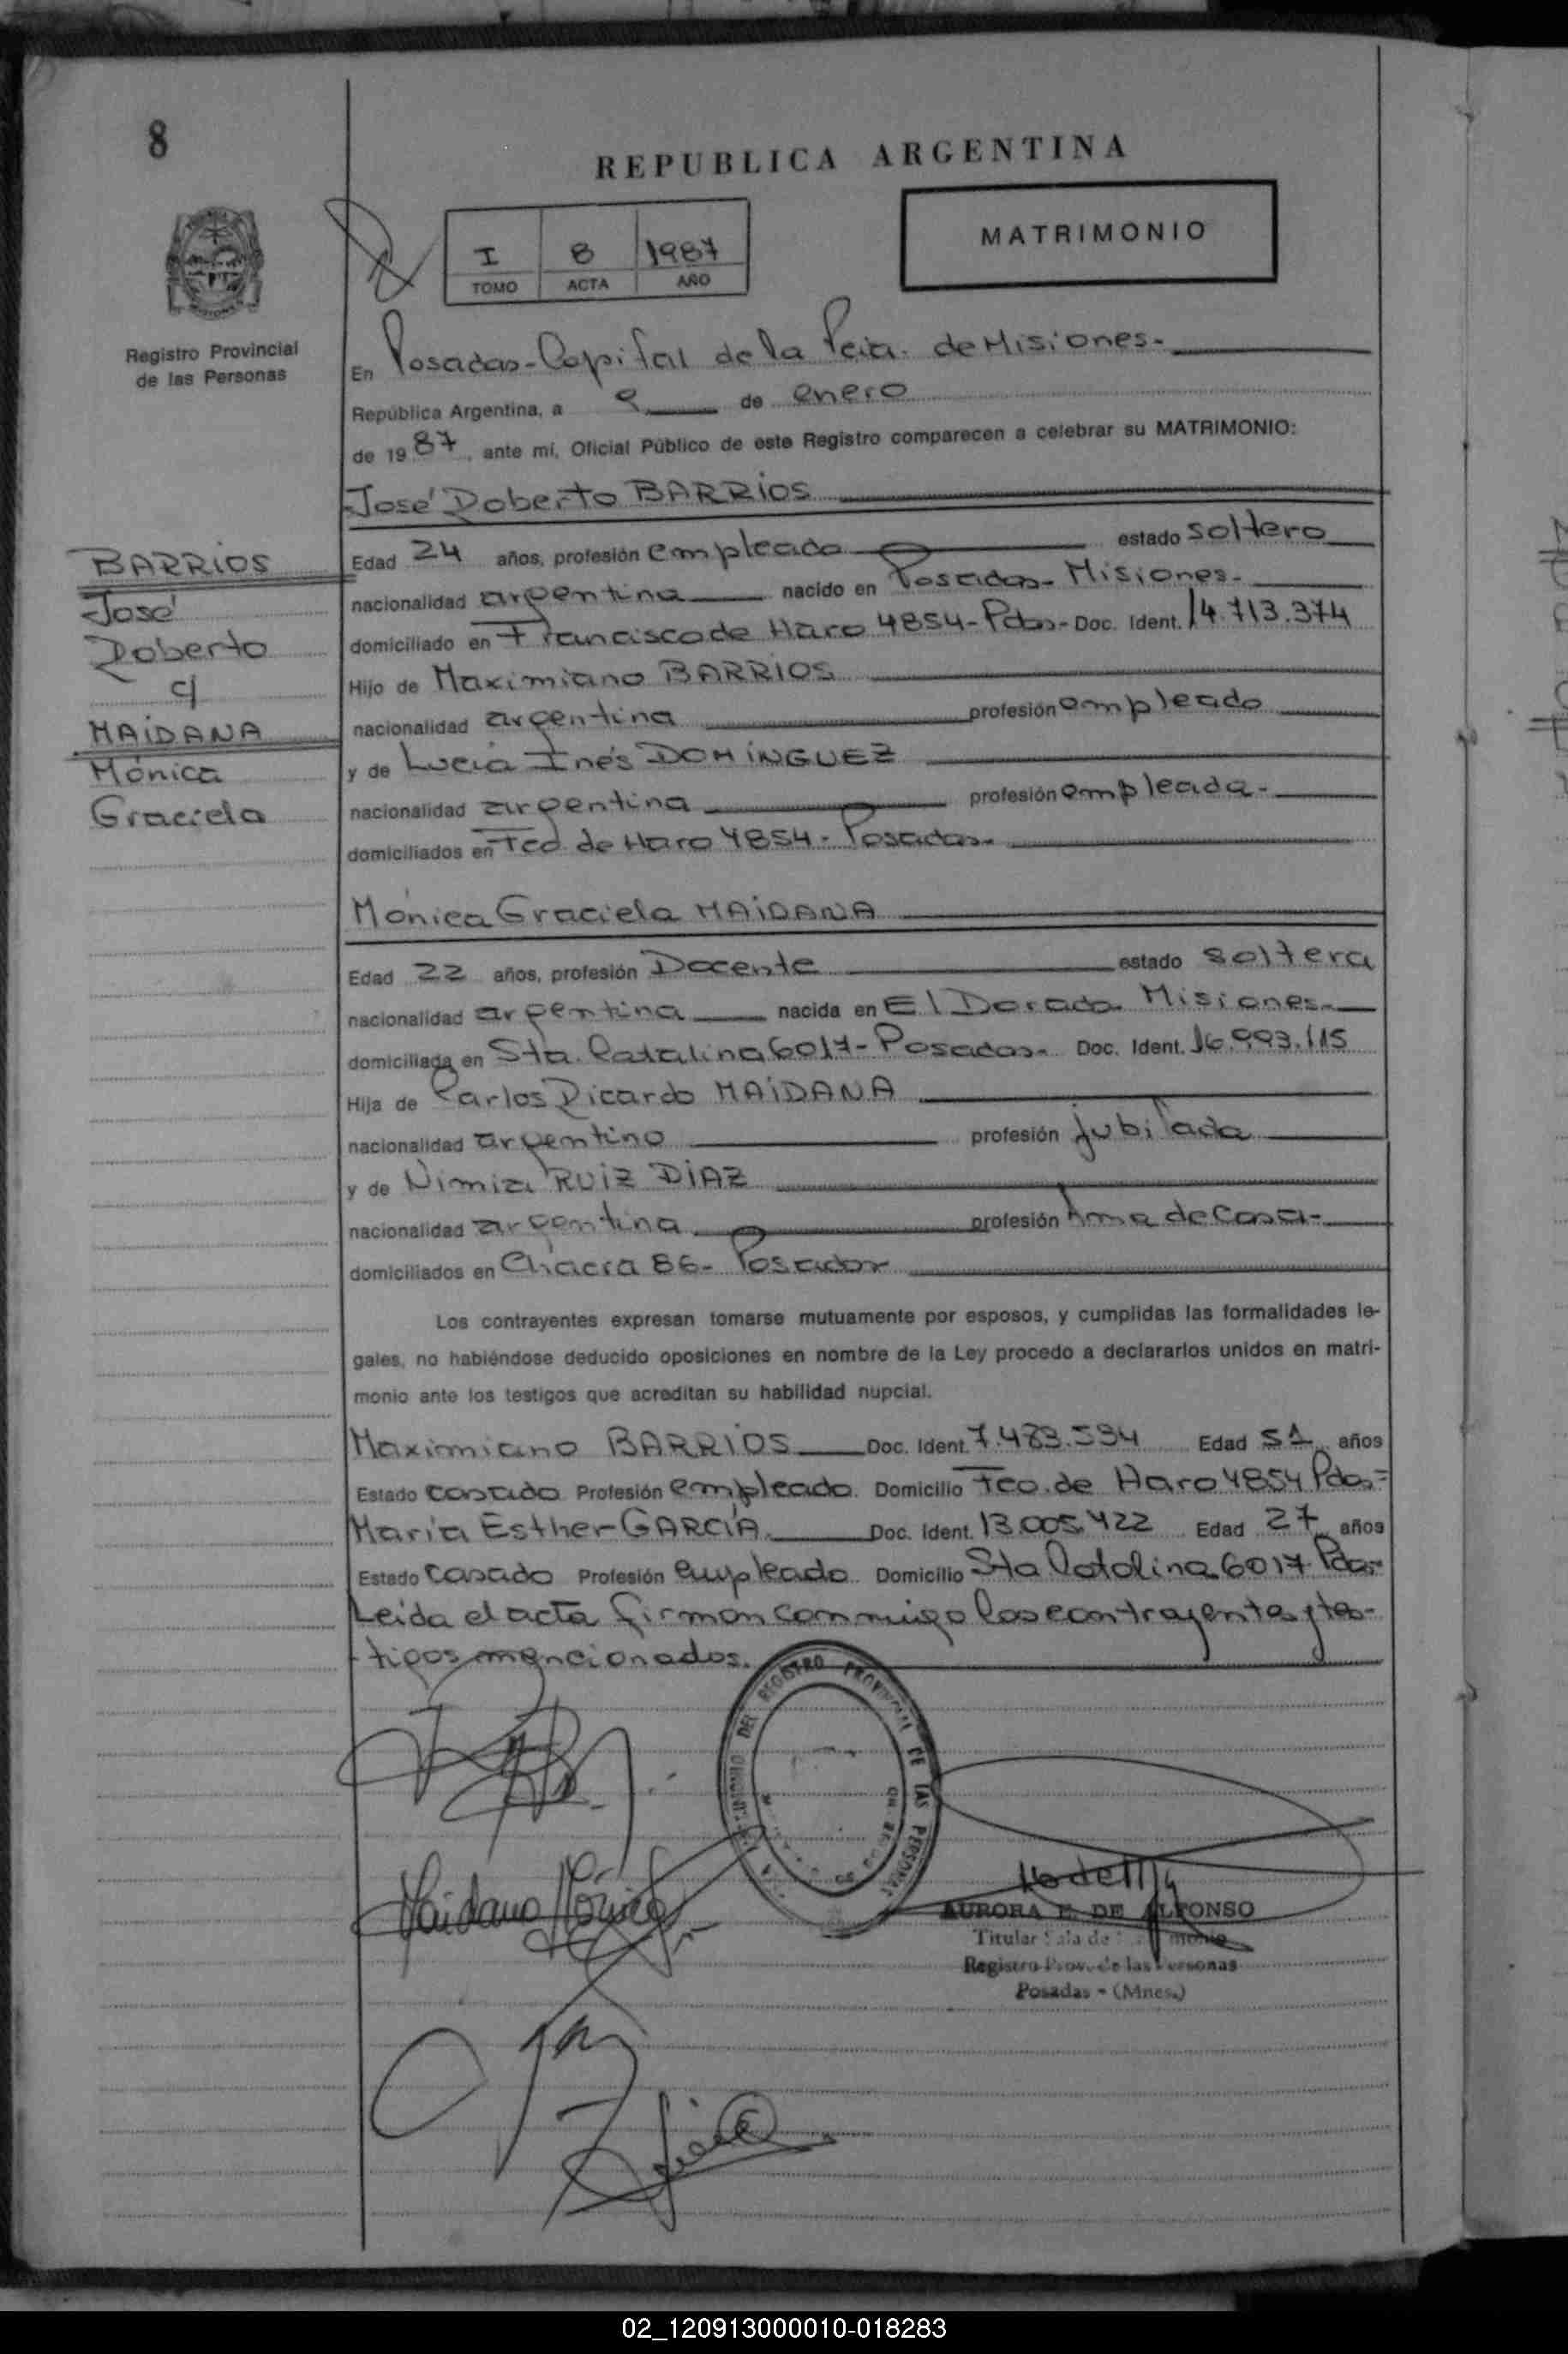 8
REPUBLICA ARGENTINA
I 8 1987
TOMO ACTA AÑO
MATRIMONIO
Registro Provincial
de las Personas
En Posadas-Capital de la Pcia. de Misiones.-
República Argentina, a 9 de enero
de 1987, ante mí, Oficial Público de este Registro comparecen a celebrar su MATRIMONIO:
José Roberto BARRIOS
BARRIOS
José
Roberto
c/
MAIDANA
Mónica
Graciela
Edad 24 años, profesión empleado estado soltero
nacionalidad argentina nacido en Posadas- Misiones.-
domiciliado en Francisco de Haro 4854-Pdas- Doc. Ident. 14.713.374
Hijo de Maximiano BARRIOS
nacionalidad argentina profesión empleado
y de Lucía Inés DOMÍNGUEZ
nacionalidad argentina profesión empleada-
domiciliados en Fco de Haro 4854- Posadas-
Mónica Graciela MAIDANA
Edad 22 años, profesión Docente estado soltera
nacionalidad argentina nacida en El Dorado- Misiones-
domiciliada en Sta. Catalina 6017-Posadas- Doc. Ident. 16.993.115
Hija de Carlos Ricardo MAIDANA
nacionalidad argentino profesión jubilada
y de Nimia RUIZ DIAZ
nacionalidad argentina profesión Ama de Casa-
domiciliados en Chacra 86- Posadas
Los contrayentes expresan tomarse mutuamente por esposos, y cumplidas las formalidades le-
gales, no habiéndose deducido oposiciones en nombre de la Ley procedo a declararlos unidos en matri-
monio ante los testigos que acreditan su habilidad nupcial.
Maximiano BARRIOS Doc. Ident. 7.483.594 Edad 51 años
Estado casado Profesión empleado. Domicilio Fco. de Haro 4854 Pdas-
María Esther GARCÍA Doc. Ident. 13.005.422 Edad 27 años
Estado Casado Profesión empleado Domicilio Sta Catalina 6017 Pdas-
Leída el acta firman conmigo los contrayentes y tes-
tigos mencionados.
DEL REGISTRO PROVINCIAL DE LAS PERSONAS
Maidana Mónica
AURORA E. DE ALFONSO
Titular Sala de
Registro Prov. de las Personas
Posadas - (Mnes.)
02_120913000010-018283